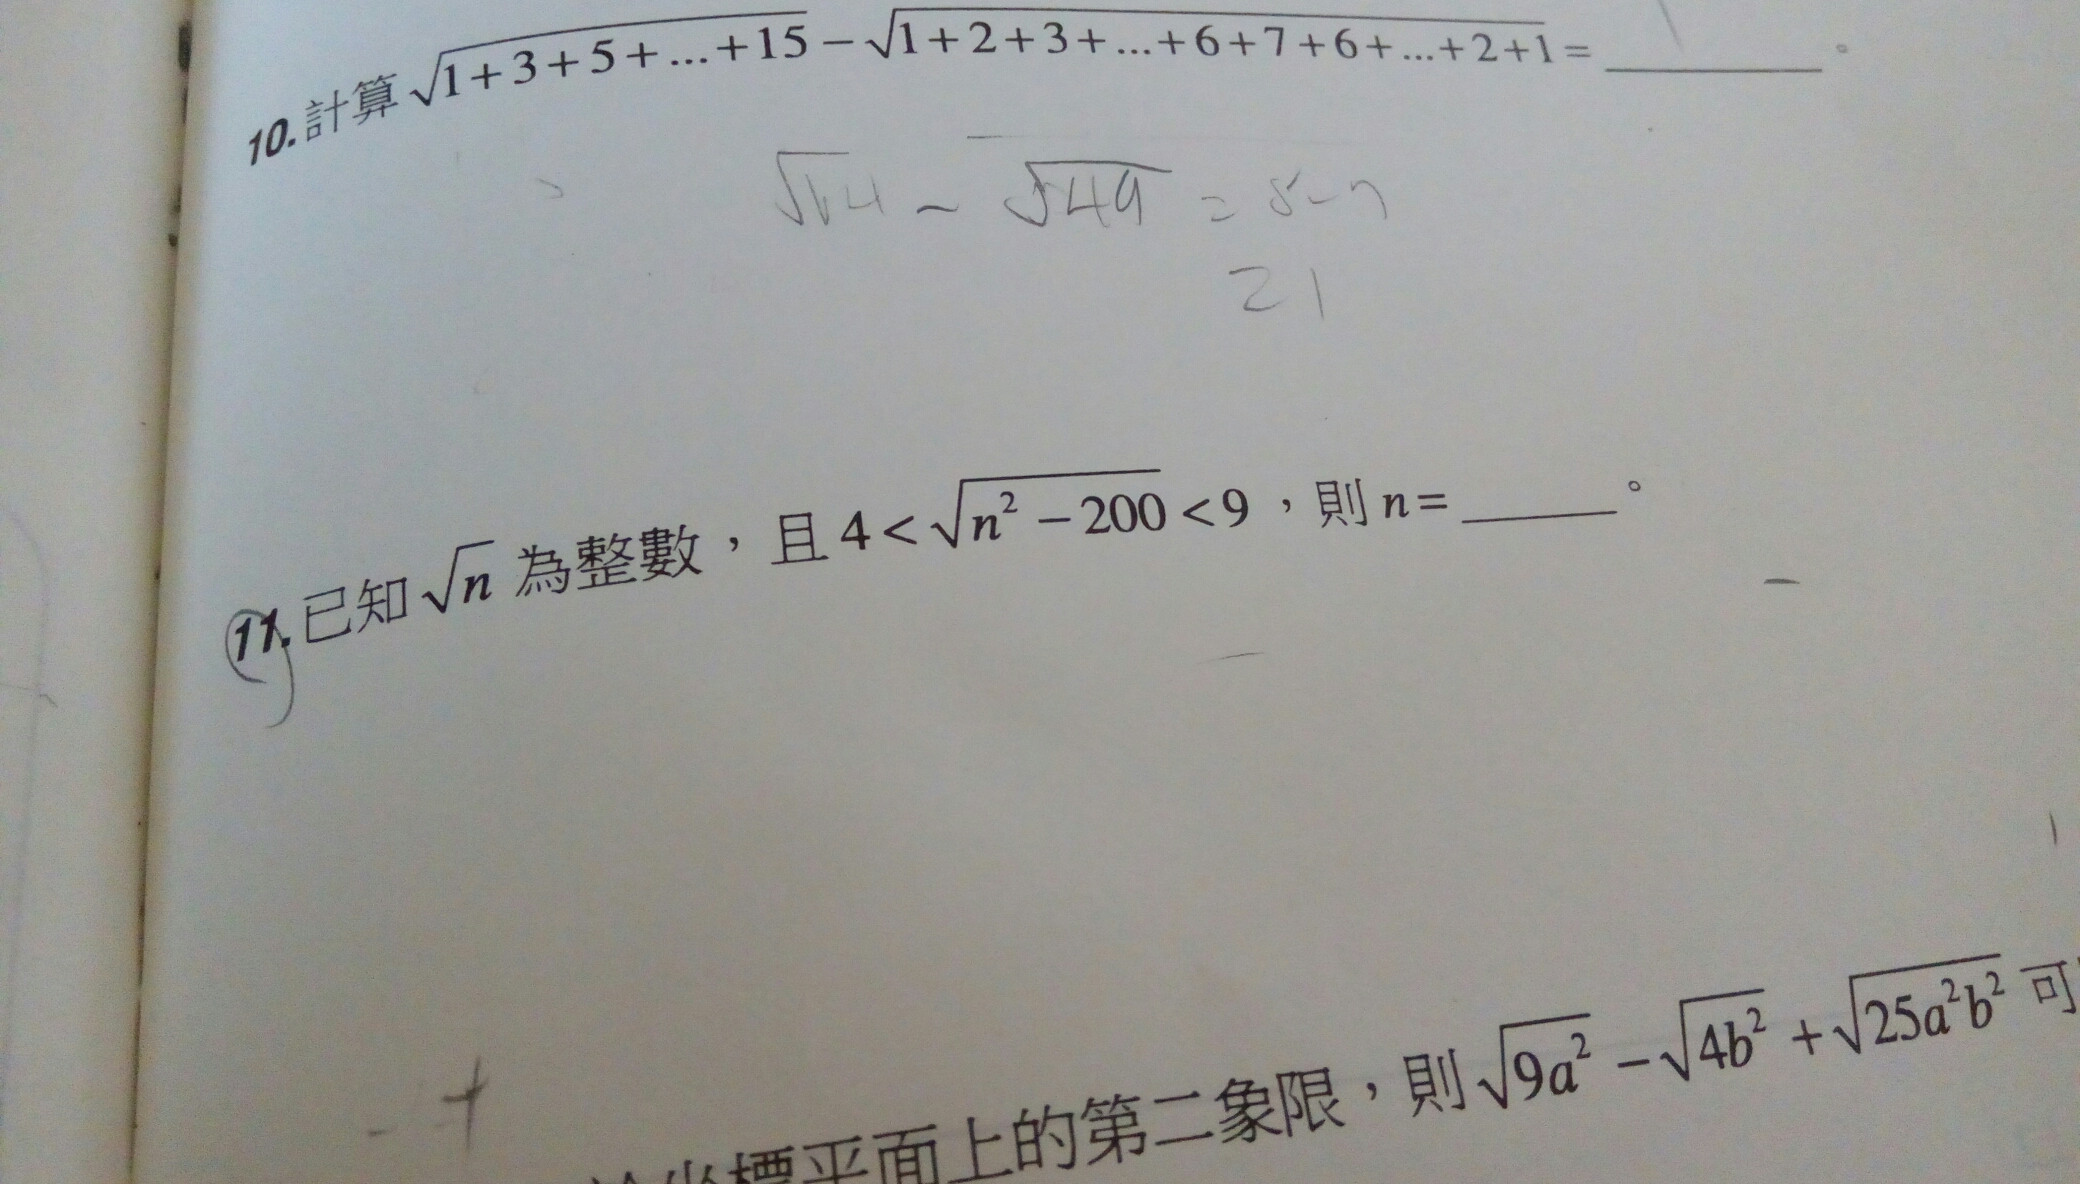 10.計算 √(1+3+5+...+15) − √(1+2+3+...+6+7+6+...+2+1) = ______。
√64 − √49 = 8−7
=1
11.已知 √n 為整數，且 4 < √(n²−200) < 9，則 n = ______。
坐標平面上的第二象限，則 √(9a²) − √(4b²) + √(25a²b²) 可